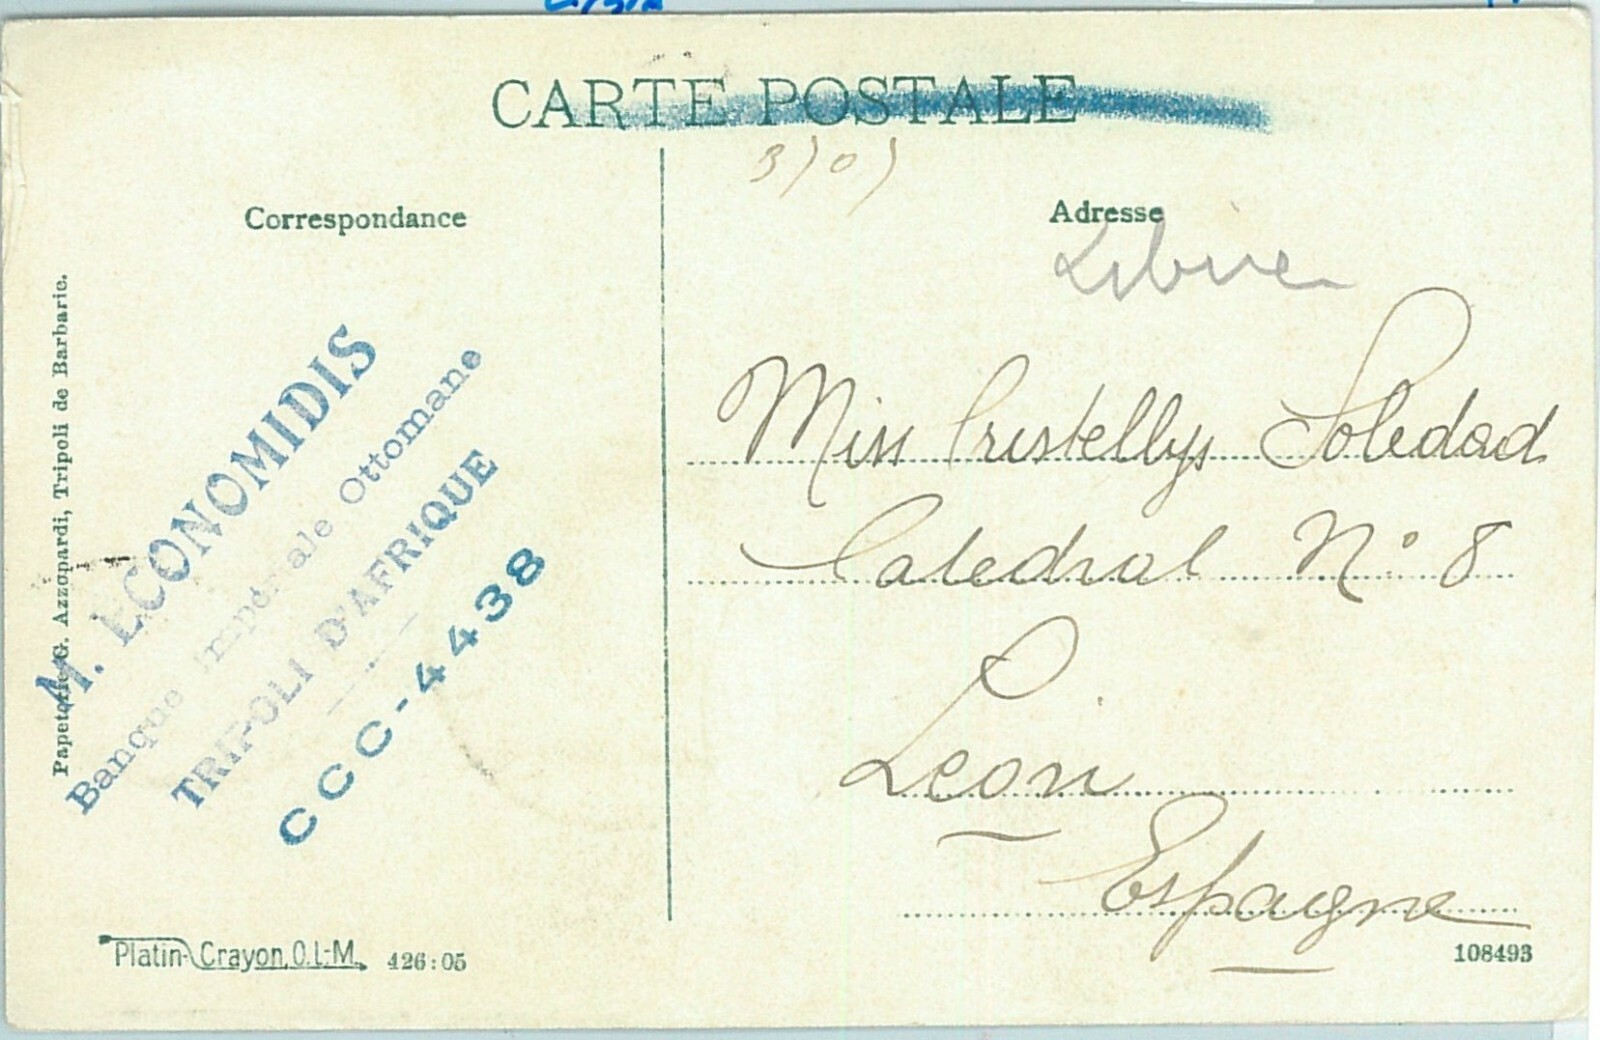 CARTE POSTALE
Correspondance
Adresse
Papeterie G. Azzopardi, Tripoli de Barbarie.
M. ECONOMIDIS
Banque Impériale Ottomane
TRIPOLI D'AFRIQUE
CCC-4438
Miss Cristellys Soledad
Catedral N° 8
Leon
Espagne
Platin-Crayon, O.L-M. 426:05
108493